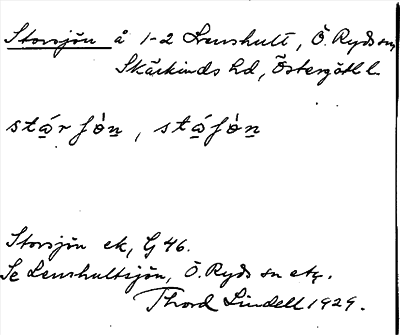 Storsjön å 1-2 Lenshult, Ö. Ryds sn,
Skärkinds hd, Östergötl l.
stárʃòn, stáʃòn
Storsjön ek, G 46.
Se Lenshultsjön, Ö. Ryds sn etc.
Thord Lindell 1929.